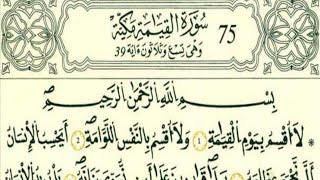 75
سُورَةُ الْقِيَامَةِ مَكِّيَّة
وَهِيَ تِسْعٌ وَثَلَاثُونَ ايَة 39
بِسْمِ اللَّهِ الرَّحْمَنِ الرَّحِيمِ
لَا أُقْسِمُ بِيَوْمِ الْقِيَامَةِ وَلَا أُقْسِمُ بِالنَّفْسِ اللَّوَّامَةِ أَيَحْسَبُ الْإِنْسَانُ